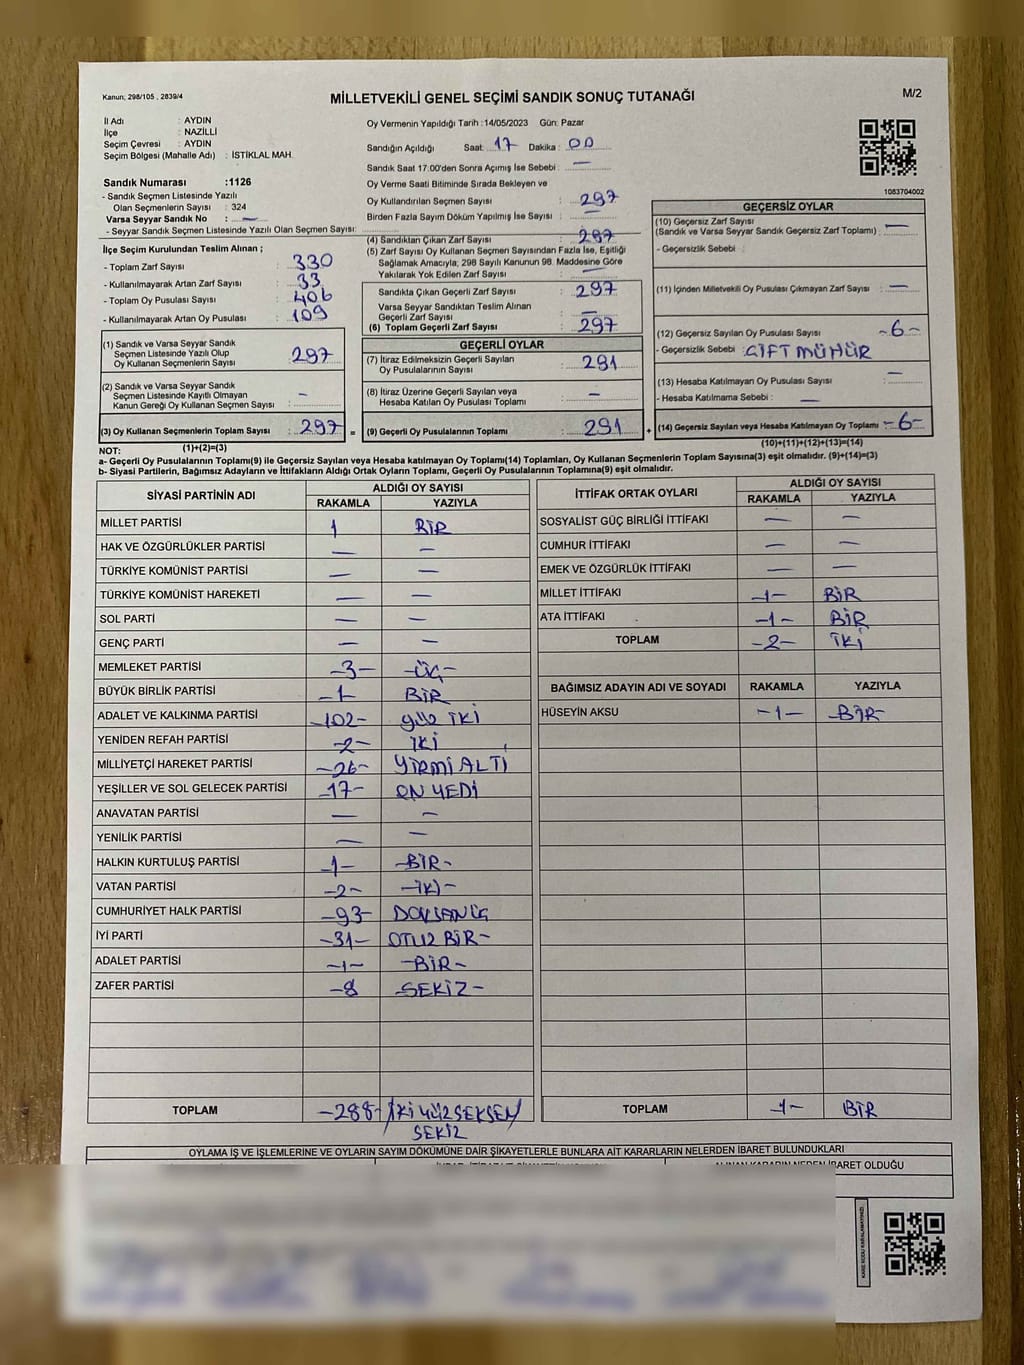 Kanun; 298/105 , 2839/4
MİLLETVEKİLİ GENEL SEÇİMİ SANDIK SONUÇ TUTANAĞI
M/2
İl Adı : AYDIN
İlçe : NAZİLLİ
Seçim Çevresi : AYDIN
Seçim Bölgesi (Mahalle Adı) : İSTİKLAL MAH.
Sandık Numarası :1126
- Sandık Seçmen Listesinde Yazılı
Olan Seçmenlerin Sayısı : 324
Varsa Seyyar Sandık No : —
- Seyyar Sandık Seçmen Listesinde Yazılı Olan Seçmen Sayısı:
İlçe Seçim Kurulundan Teslim Alınan ;
- Toplam Zarf Sayısı : 330
- Kullanılmayarak Artan Zarf Sayısı : 33
- Toplam Oy Pusulası Sayısı : 406
- Kullanılmayarak Artan Oy Pusulası : 109
(1) Sandık ve Varsa Seyyar Sandık
Seçmen Listesinde Yazılı Olup
Oy Kullanan Seçmenlerin Sayısı : 297
(2) Sandık ve Varsa Seyyar Sandık
Seçmen Listesinde Kayıtlı Olmayan
Kanun Gereği Oy Kullanan Seçmen Sayısı : —
(3) Oy Kullanan Seçmenlerin Toplam Sayısı : 297
(1)+(2)=(3)
Oy Vermenin Yapıldığı Tarih :14/05/2023 Gün: Pazar
Sandığın Açıldığı Saat: 17 Dakika : 00
Sandık Saat 17:00'den Sonra Açımış İse Sebebi : —
Oy Verme Saati Bitiminde Sırada Bekleyen ve
Oy Kullandırılan Seçmen Sayısı : 297
Birden Fazla Sayım Döküm Yapılmış İse Sayısı : —
(4) Sandıktan Çıkan Zarf Sayısı : 297
(5) Zarf Sayısı Oy Kullanan Seçmen Sayısından Fazla İse, Eşitliği
Sağlamak Amacıyla; 298 Sayılı Kanunun 98. Maddesine Göre
Yakılarak Yok Edilen Zarf Sayısı : —
Sandıkta Çıkan Geçerli Zarf Sayısı : 297
Varsa Seyyar Sandıktan Teslim Alınan
Geçerli Zarf Sayısı : —
(6) Toplam Geçerli Zarf Sayısı : 297
GEÇERLİ OYLAR
(7) İtiraz Edilmeksizin Geçerli Sayılan
Oy Pusulalarının Sayısı : 291
(8) İtiraz Üzerine Geçerli Sayılan veya
Hesaba Katılan Oy Pusulası Toplamı : —
= (9) Geçerli Oy Pusulalarının Toplamı : 291 +
1083704002
GEÇERSİZ OYLAR
(10) Geçersiz Zarf Sayısı
(Sandık ve Varsa Seyyar Sandık Geçersiz Zarf Toplamı) : —
- Geçersizlik Sebebi :
(11) İçinden Milletvekili Oy Pusulası Çıkmayan Zarf Sayısı : —
(12) Geçersiz Sayılan Oy Pusulası Sayısı : -6-
- Geçersizlik Sebebi : ÇİFT MÜHÜR
(13) Hesaba Katılmayan Oy Pusulası Sayısı : —
- Hesaba Katılmama Sebebi : —
(14) Geçersiz Sayılan veya Hesaba Katılmayan Oy Toplamı : -6-
(10)+(11)+(12)+(13)=(14)
NOT:
a- Geçerli Oy Pusulalarının Toplamı(9) ile Geçersiz Sayılan veya Hesaba Katılmayan Oy Toplamı(14) Toplamları, Oy Kullanan Seçmenlerin Toplam Sayısına(3) eşit olmalıdır. (9)+(14)=(3)
b- Siyasi Partilerin, Bağımsız Adayların ve İttifakların Aldığı Ortak Oyların Toplamı, Geçerli Oy Pusulalarının Toplamına(9) eşit olmalıdır.
SİYASİ PARTİNİN ADI ALDIĞI OY SAYISI
RAKAMLA YAZIYLA
MİLLET PARTİSİ 1 BİR
HAK VE ÖZGÜRLÜKLER PARTİSİ — —
TÜRKİYE KOMÜNİST PARTİSİ — —
TÜRKİYE KOMÜNİST HAREKETİ — —
SOL PARTİ — —
GENÇ PARTİ — —
MEMLEKET PARTİSİ -3- -ÜÇ-
BÜYÜK BİRLİK PARTİSİ -1- BİR
ADALET VE KALKINMA PARTİSİ -102- YÜZ İKİ
YENİDEN REFAH PARTİSİ -2- İKİ
MİLLİYETÇİ HAREKET PARTİSİ -26- YİRMİ ALTI
YEŞİLLER VE SOL GELECEK PARTİSİ -17- ON YEDİ
ANAVATAN PARTİSİ — —
YENİLİK PARTİSİ — —
HALKIN KURTULUŞ PARTİSİ -1- -BİR-
VATAN PARTİSİ -2- -İKİ-
CUMHURİYET HALK PARTİSİ -93- DOKSAN ÜÇ
İYİ PARTİ -31- OTUZ BİR-
ADALET PARTİSİ -1- -BİR-
ZAFER PARTİSİ -8 -SEKİZ-
TOPLAM -288- İKİ YÜZ SEKSEN
SEKİZ
İTTİFAK ORTAK OYLARI ALDIĞI OY SAYISI
RAKAMLA YAZIYLA
SOSYALİST GÜÇ BİRLİĞİ İTTİFAKI — —
CUMHUR İTTİFAKI — —
EMEK VE ÖZGÜRLÜK İTTİFAKI — —
MİLLET İTTİFAKI -1- BİR
ATA İTTİFAKI -1- BİR
TOPLAM -2- İKİ
BAĞIMSIZ ADAYIN ADI VE SOYADI RAKAMLA YAZIYLA
HÜSEYİN AKSU -1- -BİR-
TOPLAM -1- BİR
OYLAMA İŞ VE İŞLEMLERİNE VE OYLARIN SAYIM DÖKÜMÜNE DAİR ŞİKAYETLERLE BUNLARA AİT KARARLARIN NELERDEN İBARET BULUNDUKLARI
ALINAN KARARIN NEDEN İBARET OLDUĞU